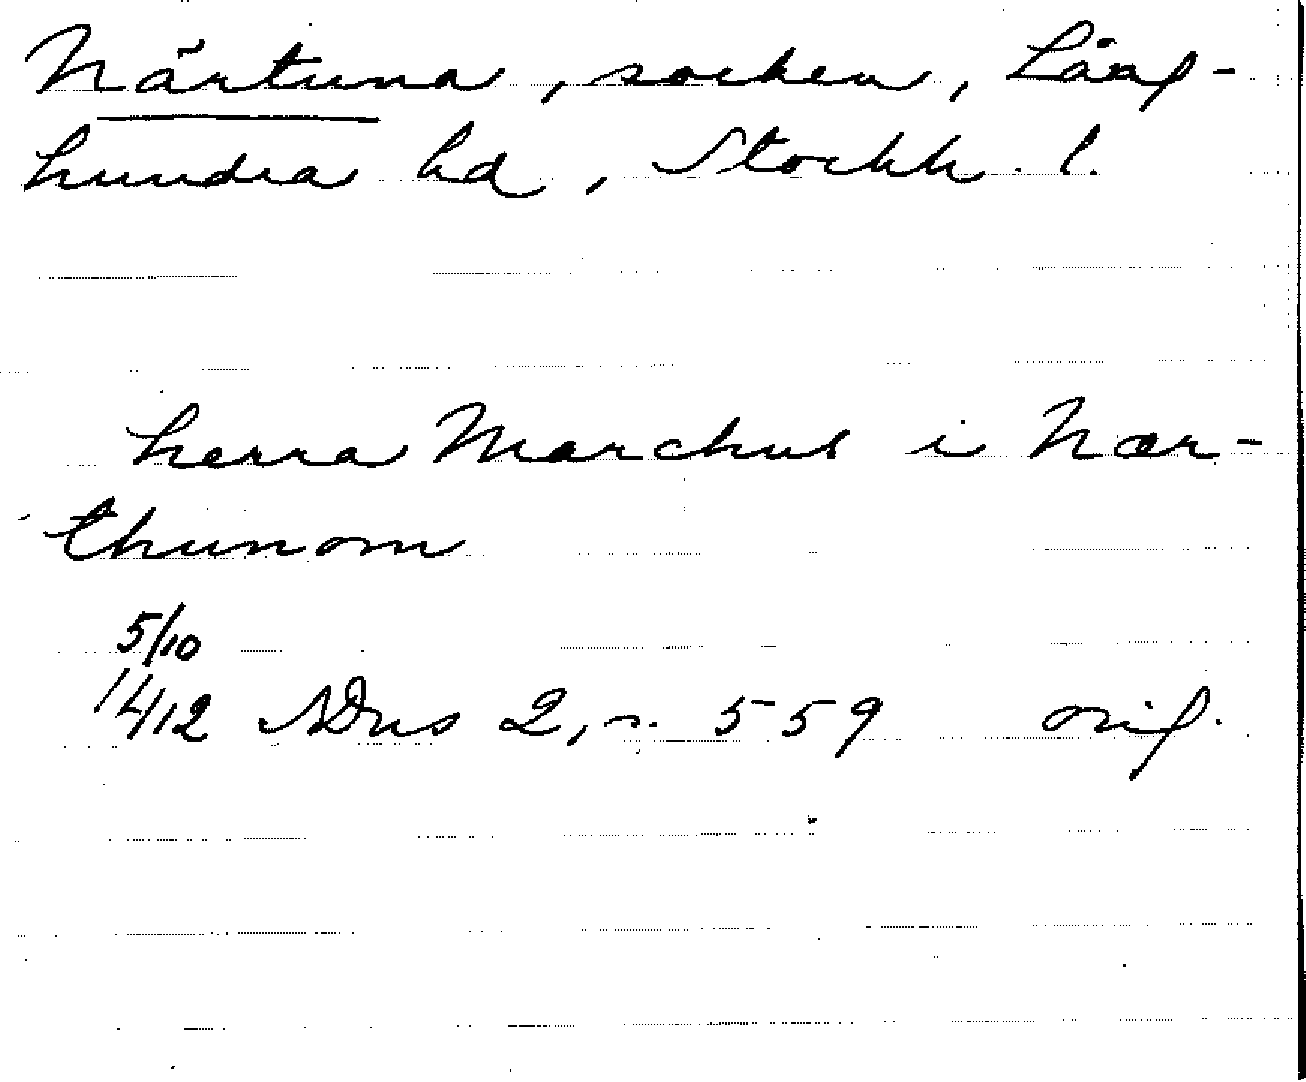 Närtuna, socken, Lång-
hundra hd, Stockh. l.
herra Marchus i Nær-
thunom
5/10
1412 SDns 2, s. 559 orig.